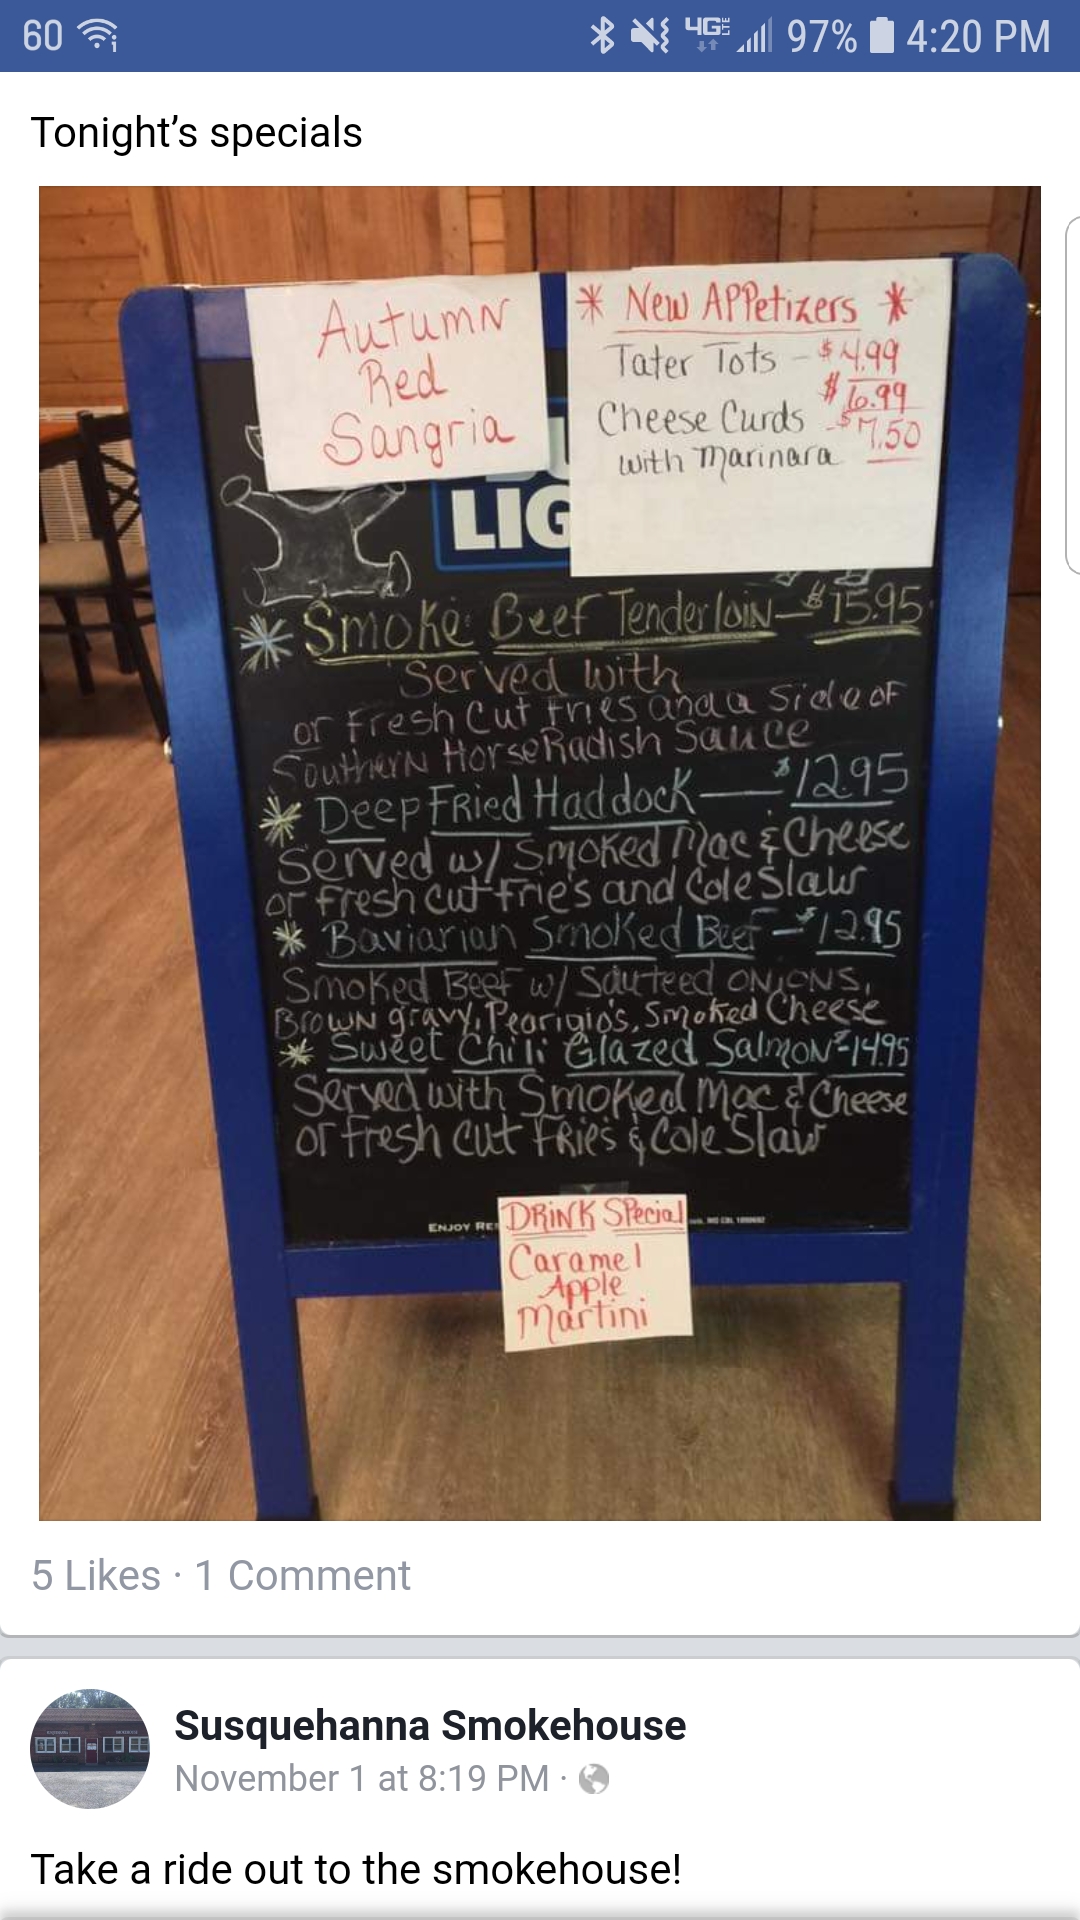 60
4G LTE
97%
4:20 PM
Tonight’s specials
Autumn
Red
Sangria
* New Appetizers *
Tater Tots - $4.99
$6.99
Cheese Curds - $7.50
with Marinara
LIG
* Smoke Beef Tenderloin - $15.95
Served with
or Fresh Cut Fries and a side of
Southern HorseRadish Sauce
* Deep Fried Haddock - $12.95
Served w/ Smoked Mac & Cheese
or fresh cut fries and Cole Slaw
* Baviarian Smoked Beef - $12.95
Smoked Beef w/ Sauteed Onions,
Brown gravy, Smoked Cheese
* Sweet Chili Glazed Salmon - $14.95
Served with Smoked Mac & Cheese
or fresh cut Fries & Cole Slaw
ENJOY
DRINK Special
Caramel
Apple
Martini
5 Likes · 1 Comment
Susquehanna Smokehouse
November 1 at 8:19 PM ·
Take a ride out to the smokehouse!